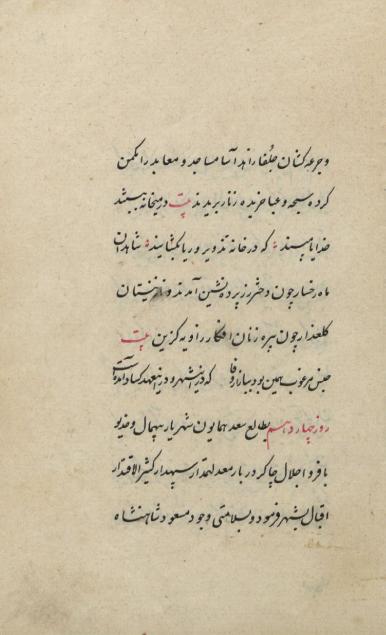 و جرعه کنان جلفا زاهد آسا مساجد و معابد را مکمن
کرده سبحه و عبا خریده زنار بریدند بیت در میخانه ببستند
خدایا مپسند که در خانه تزویر و ریا بگشایند شاهدان
ماه رخسار چون دختر رز پرده نشین آمدند و نازنینان
گلعذار چون پیره زنان افکار زاویه گزین بیت
جنس مرغوب همین بود ببازار وفا که در این شهر و در این عهد کساد آمده است
روز چهاردهم بطالع سعد همایون شهریار بیهمال و خدیو
با فر و اجلال چاکر دربار معدلتمدار سپهدار کثیر الاقتدار
اقبال بشهر فرمود و بسلامتی وجود مسعود شاهنشاه